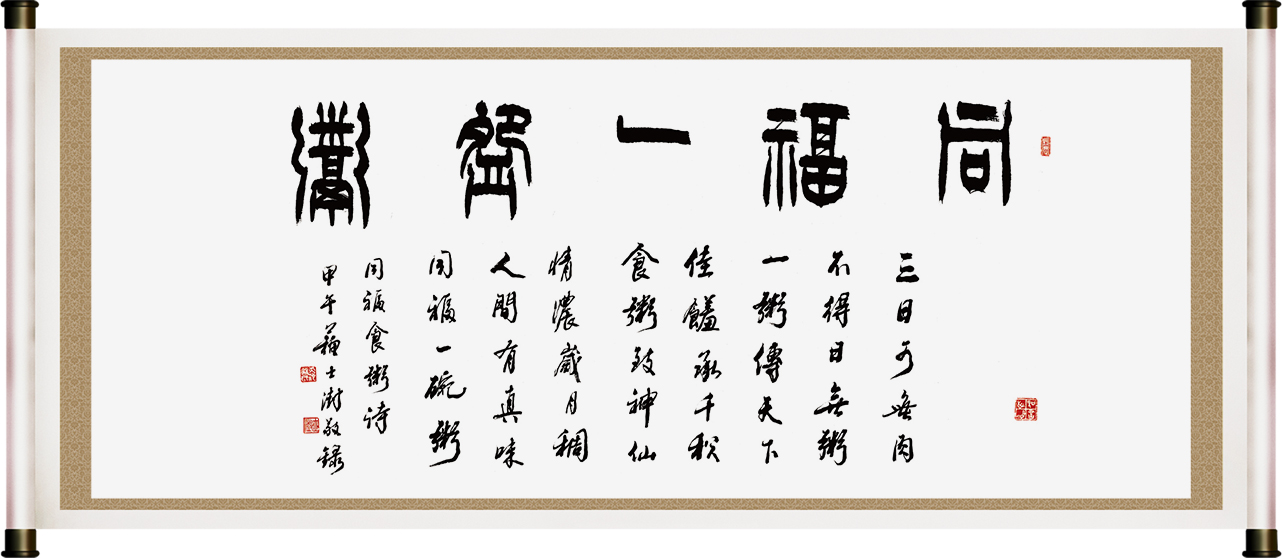 同福一盌鬻
三日可無肉
不得日無粥
一粥傳天下
佳饈承千秋
食粥致神仙
情濃歲月稠
人間有真味
同福一碗粥
同福食粥詩
甲午蘇士澍敬錄